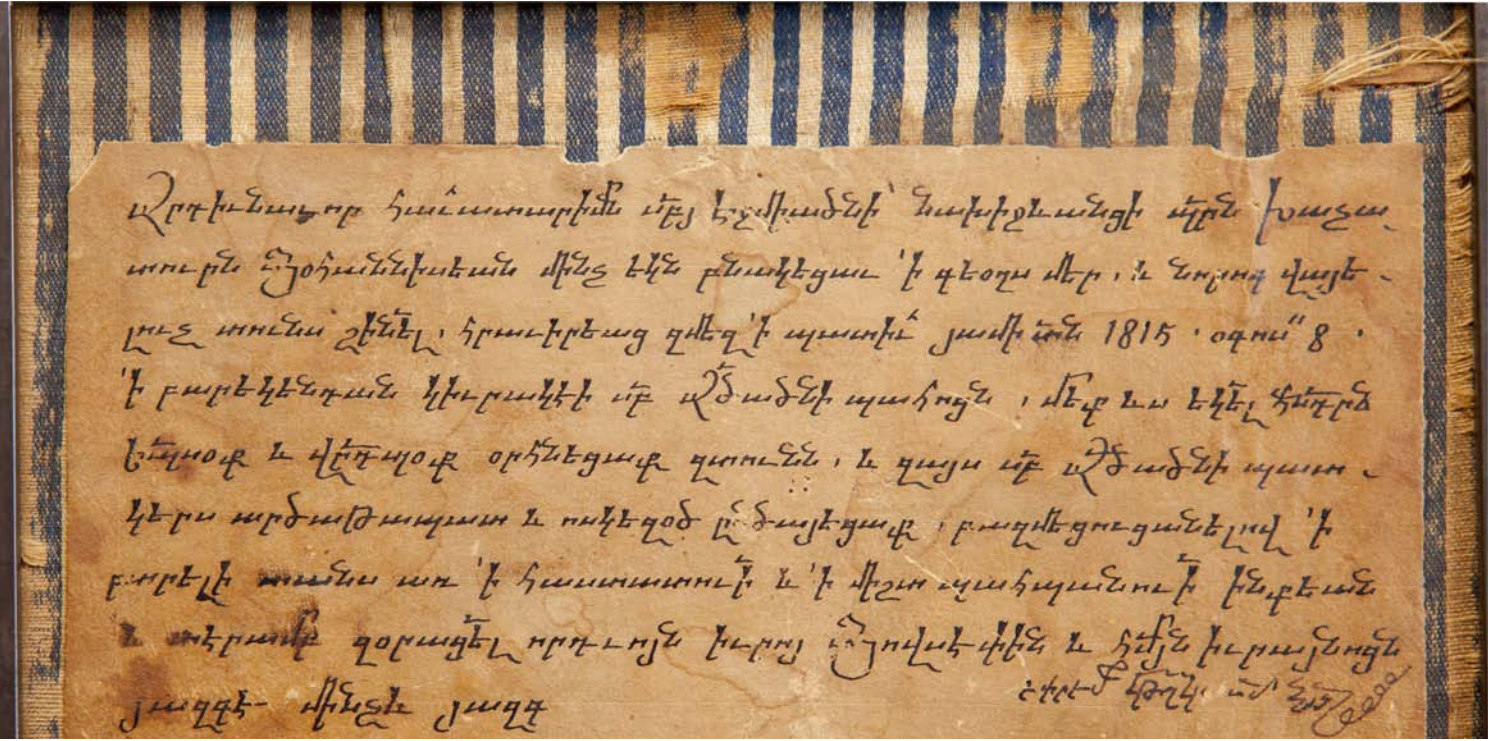 Արդիւնաւոր հաւատարիմն սրբյ Էջմիածնի՝ նախիջևանցի պրն Խաչա֊
տուրն Յօհաննիսեան մինչ եկն բնակեցաւ ՚ի գեօղս մեր, և նորոգ վայե֊
լուչ տունս շինել, հրաւիրեաց զմեզ ՚ի պատիւ յամի տն 1815 · օգոս" 8 ·
՚ի բարեկենդան կիւրակէի սբ Ածածնի պահոցն , մեք ևս եկել
և օրհնեցաք զտունն , և զայս սբ Ածածնի պատ֊
կերս արծաթապատ և ոսկեզօծ ըծայեցաք , բազմեցուցանելով ՚ի
բարելի տանս առ ՚ի հաստատուի և ՚ի միշտ պահպանուի ինքեան
և տէրամբ զօրացել որդւոյն իւրոյ Յովսէփին և հմյն իւրայնոցն
յազգէ մինչև յազգ